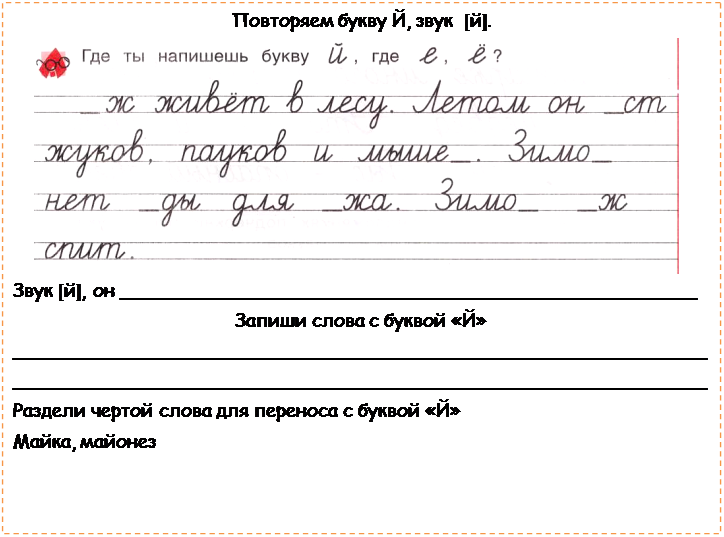 Повторяем букву Й, звук [й].
Где ты напишешь букву й, где е, ё?
_ж живёт в лесу. Летом он _ст
жуков, пауков и мыше_. Зимо_
нет _ды для _жа. Зимо_ _ж
спит.
Звук [й], он ______
Запиши слова с буквой «Й»
Раздели чертой слова для переноса с буквой «Й»
Майка, майонез